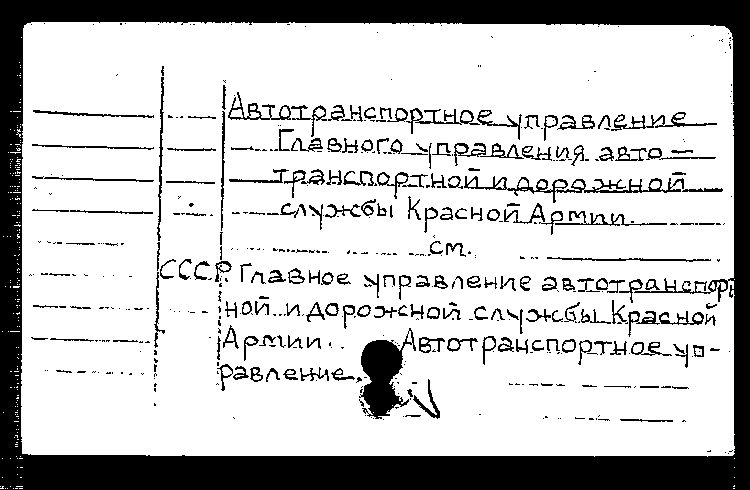 Автотранспортное управление
Главного управления авто-
транспортной и дорожной
службы Красной Армии.
см.
СССР. Главное управление автотранспорт
ной и дорожной службы Красной
Армии.. Автотранспортное уп-
равление.